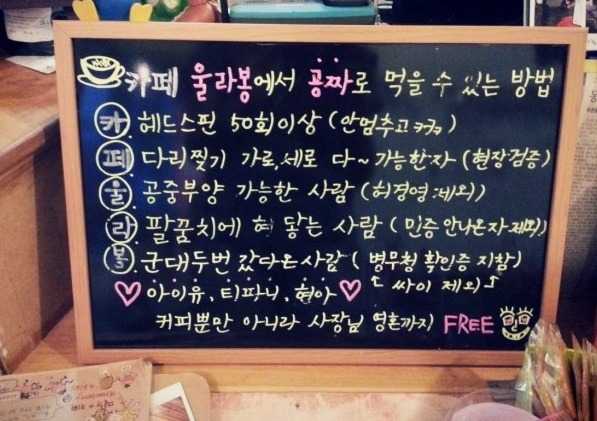 카페 울라봉에서 공짜로 먹을 수 있는 방법
카 헤드스핀 50회이상 (안멈추고 ㅋㅋㅋ)
페 다리찢기 가로,세로 다~ 가능한자 (현장검증)
울 공중부양 가능한 사람 (허경영 제외)
라 팔꿈치에 혀 닿는 사람 (민증 안나온자 제외)
봉 군대두번 갔다온사람 (병무청 확인증 지참)
♡ 아이유, 티파니, 현아 ♡ ↑ 싸이 제외 ↑
커피뿐만 아니라 사장님 영혼까지 FREE